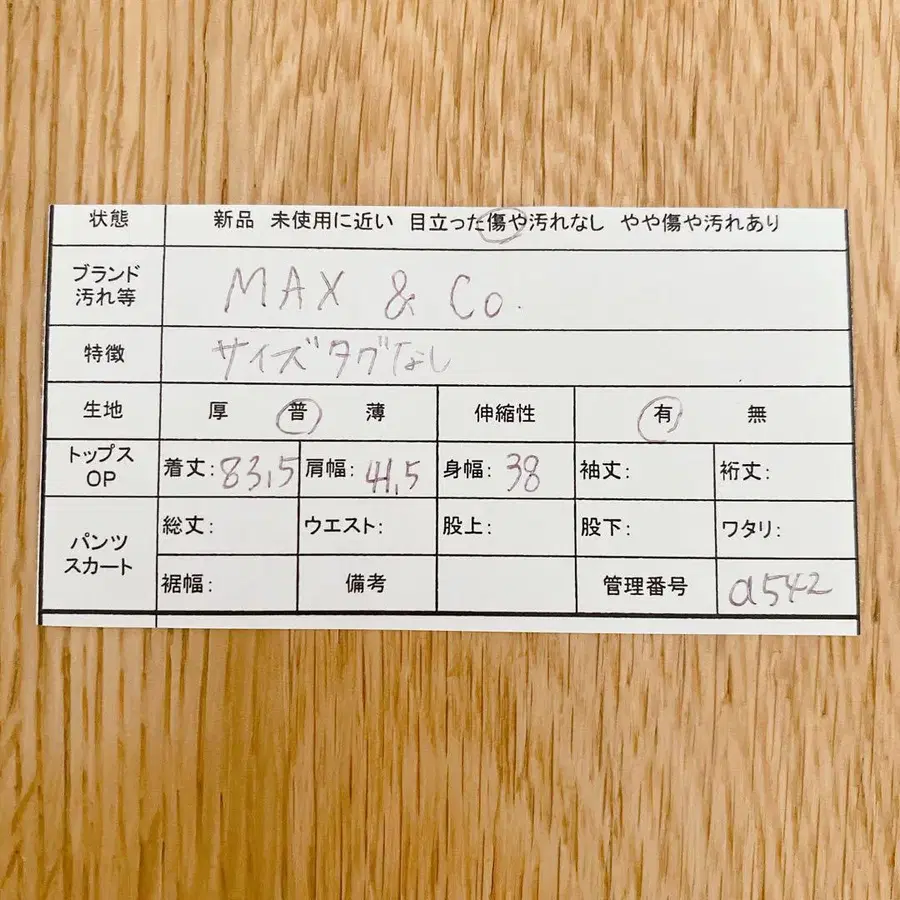 状態 新品 未使用に近い 目立った傷や汚れなし やや傷や汚れあり
ブランド
汚れ等 MAX & Co.
特徴 サイズタグなし
生地 厚 普 薄 伸縮性 有 無
トップス
OP 着丈:83,5 肩幅:41,5 身幅:38 袖丈: 裄丈:
パンツ
スカート 総丈: ウエスト: 股上: 股下: ワタリ:
裾幅: 備考 管理番号 a542